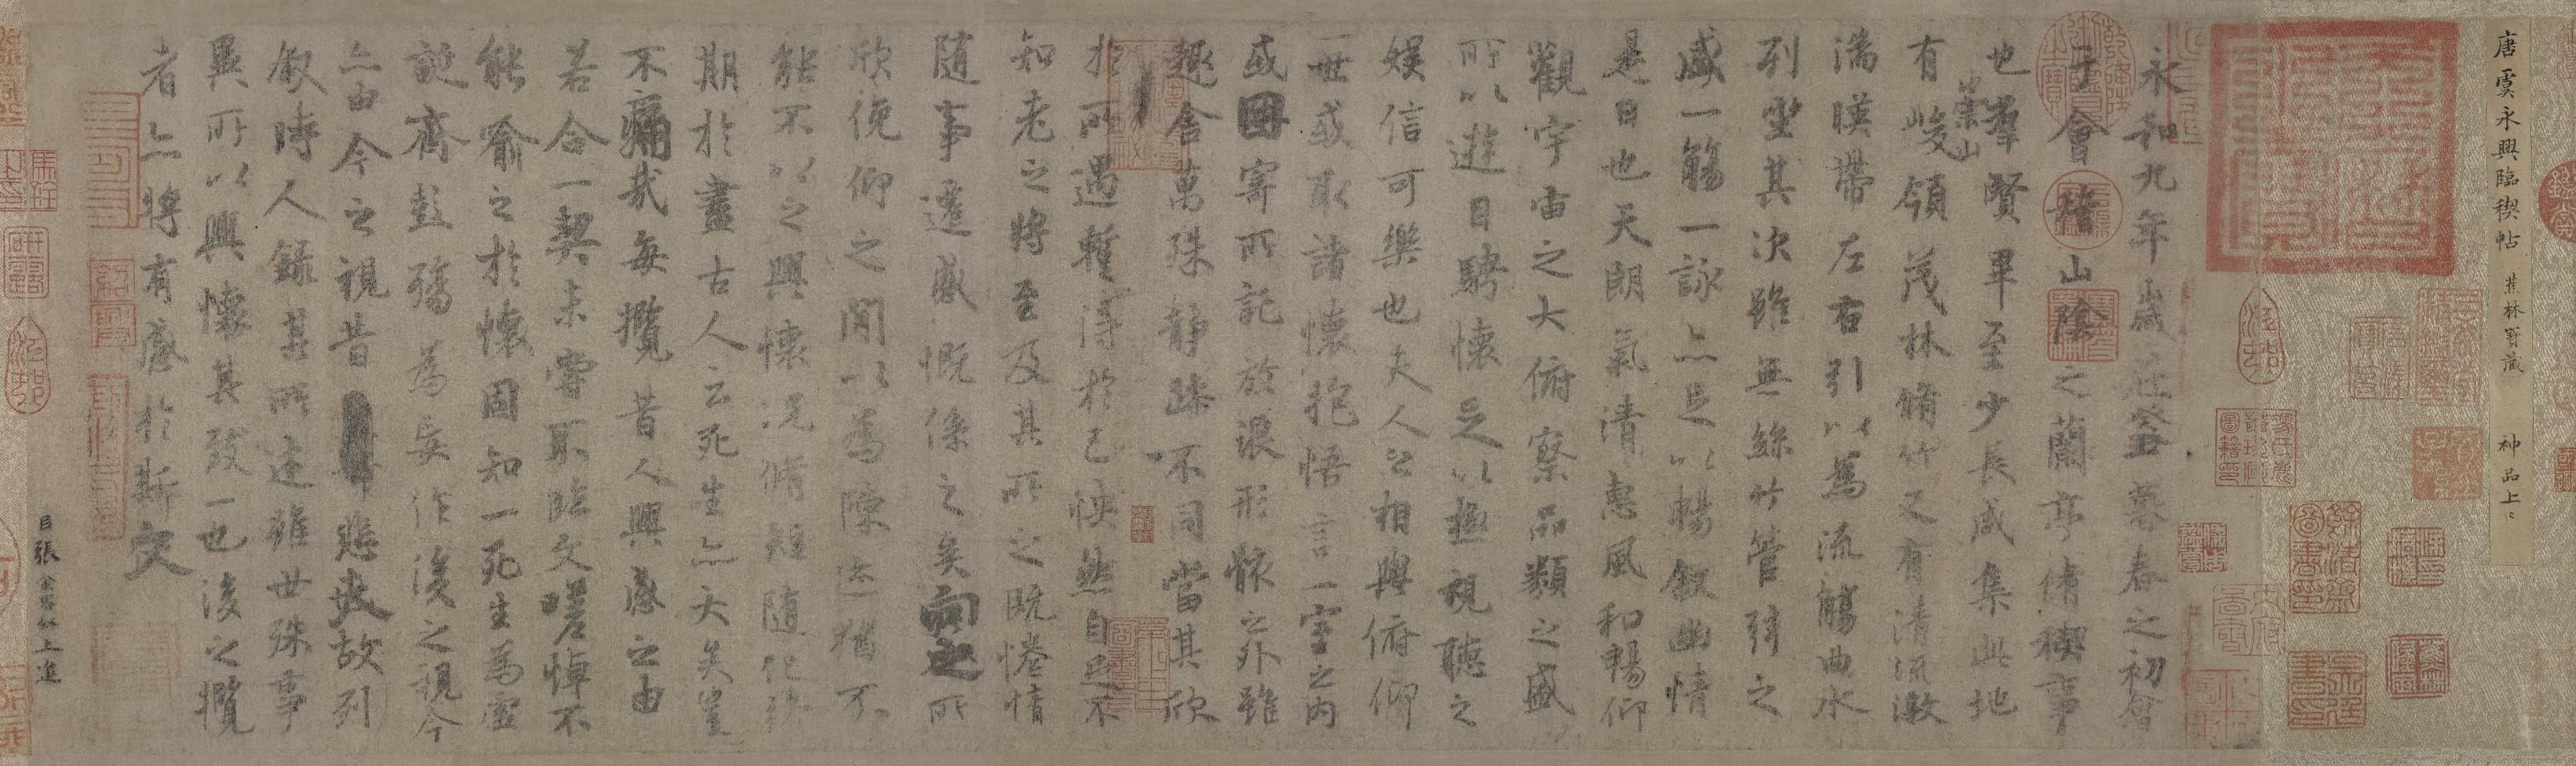 唐虞永興臨禊帖 蕉林寶藏 神品上上
永和九年歲在癸丑暮春之初會
于會稽山陰之蘭亭脩禊事
也羣賢畢至少長咸集此地
有崇山峻領茂林脩竹又有清流激
湍暎帶左右引以為流觴曲水
列坐其次雖無絲竹管弦之
盛一觴一詠亦足以暢叙幽情
是日也天朗氣清惠風和暢仰
觀宇宙之大俯察品類之盛
所以遊目騁懷足以極視聽之
娛信可樂也夫人之相與俯仰
一世或取諸懷抱悟言一室之內
或因寄所託放浪形骸之外雖
趣舍萬殊静躁不同當其欣
於所遇蹔得於己怏然自足不
知老之將至及其所之既惓情
随事遷感慨係之矣向之所
欣俛仰之閒以為陳迹猶不
能不以之興懷況脩短隨化終
期於盡古人云死生亦大矣豈
不痛哉每攬昔人興感之由
若合一契未嘗不臨文嗟悼不
能喻之於懷固知一死生為虛
誕齊彭殤為妄作後之視今
亦由今之視昔悲夫故列
叙時人錄其所述雖世殊事
異所以興懷其致一也後之攬
者亦將有感於斯文
臣張金界奴上進